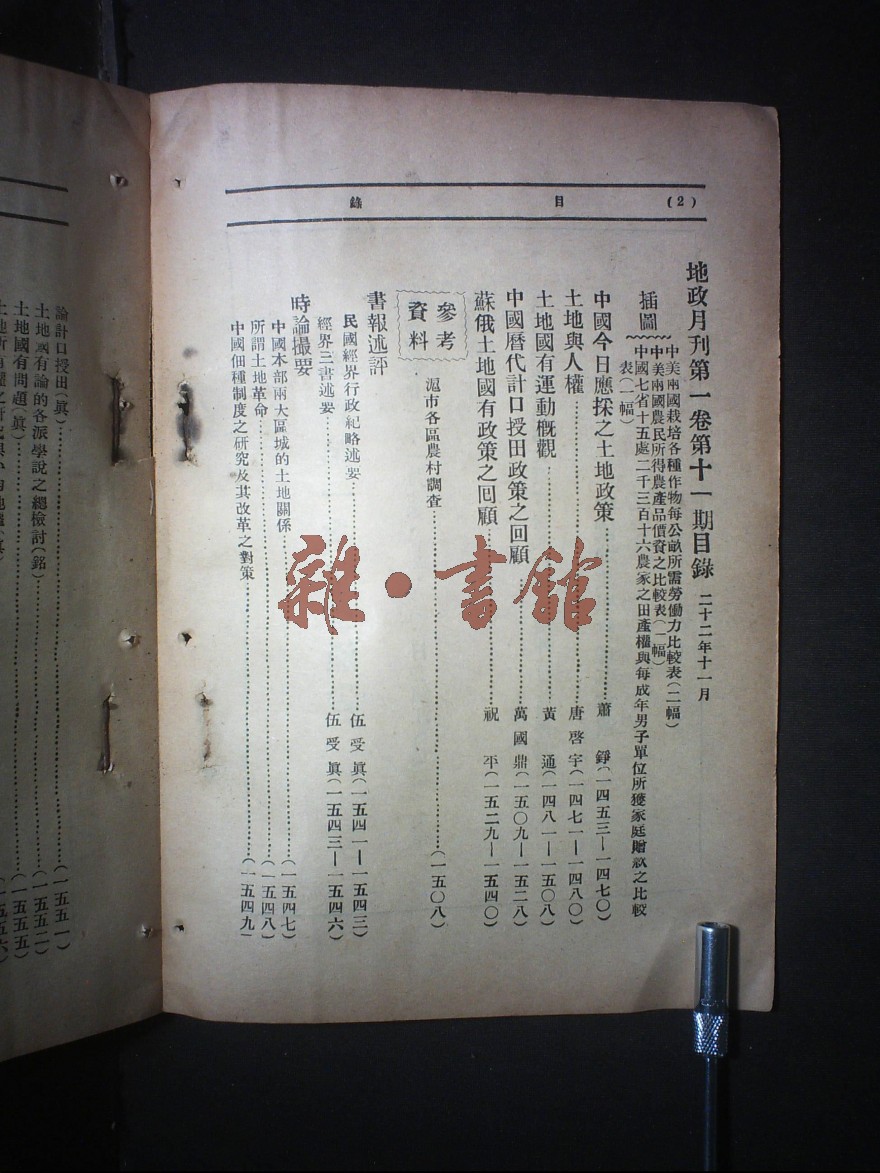 (2)　目　錄
地政月刊第一卷第十一期目錄　二十二年十一月
插圖
中美兩國栽培各種作物每公畝所需勞働力比較表(二幅)
中美兩國農民所得農產品價資之比較表(一幅)
中國七省十五處二千三百十六農家之田產權與每成年男子單位所獲家庭贈款之比較
表(一幅)
中國今日應採之土地政策……蕭　錚(一四五三—一四七〇)
土地與人權……唐啓宇(一四七一—一四八〇)
土地國有運動概觀……黃　通(一四八一—一五〇八)
中國曆代計口授田政策之回顧……萬國鼎(一五〇九—一五二八)
蘇俄土地國有政策之回顧……祝　平(一五二九—一五四〇)
參考資料
滬市各區農村調查……(一五〇八)
書報述評
民國經界行政紀略述要……伍受眞(一五四一—一五四三)
經界三書述要……伍受眞(一五四三—一五四六)
時論撮要
中國本部兩大區域的土地關係……(一五四七)
所謂土地革命……(一五四八)
中國佃種制度之研究及其改革之對策……(一五四九)
論計口授田(眞)……(一五五一)
土地國有論的各派學說之總檢討(銘)……(一五五二)
土地國有問題(眞)……(一五五五)
雜·書館